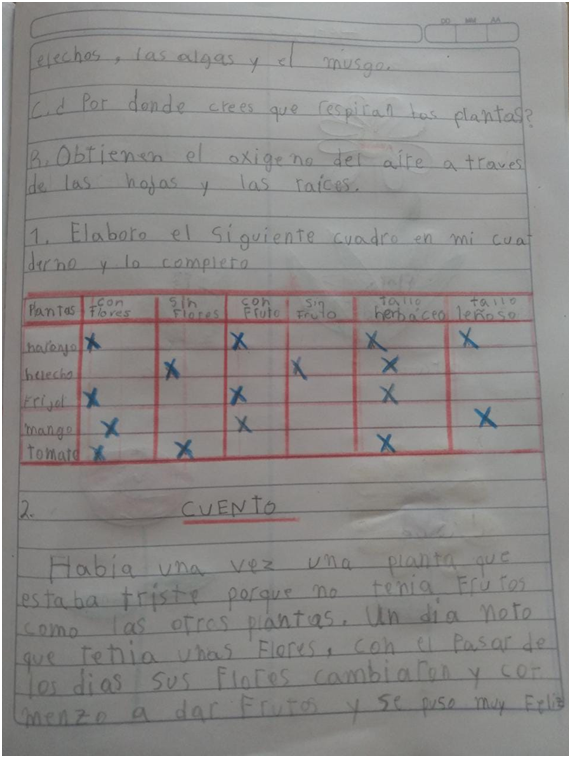 DD MM AA
elechos, las algas y el musgo.
C. ¿ Por donde crees que respiran las plantas?
R. Obtienen el oxigeno del aire a traves
de las hojas y las raices.
1. Elaboro el siguiente cuadro en mi cua
derno y lo completo
Plantas con Flores sin Flores con Fruto sin Fruto tallo herbáceo tallo leñoso
naranjo X X X X
helecho X X X
Frijol X X X
mango X X X
tomate X X X
2. CUENTO
Habia una vez una planta que
estaba triste porque no tenia Frutos
como las otras plantas. Un dia noto
que tenia unas Flores, con el Pasar de
los dias sus Flores cambiaron y co-
menzo a dar Frutos y se puso muy Feliz